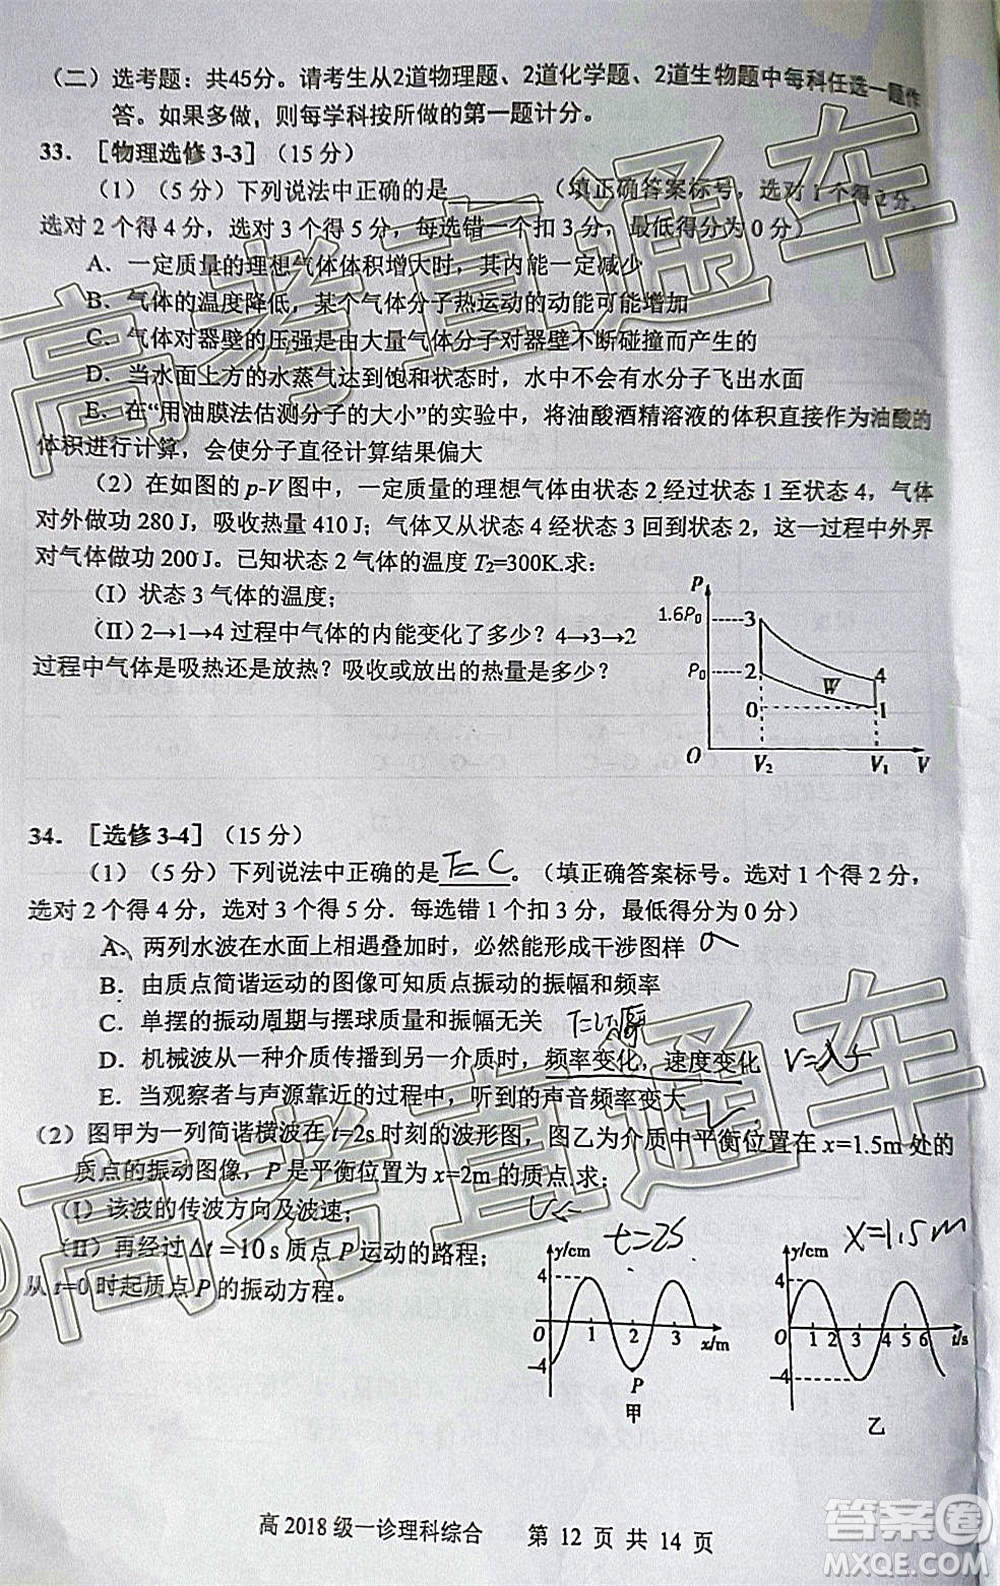 （二）选考题：共45分。请考生从2道物理题、2道化学题、2道生物题中每科任选一题作
答。如果多做，则每学科按所做的第一题计分。
33．［物理选修 3-3］（15 分）
（1）（5 分）下列说法中正确的是______（填正确答案标号，选对 1 个得 2 分，
选对 2 个得 4 分，选对 3 个得 5 分，每选错一个扣 3 分，最低得分为 0 分）
A．一定质量的理想气体体积增大时，其内能一定减少
B．气体的温度降低，某个气体分子热运动的动能可能增加
C．气体对器壁的压强是由大量气体分子对器壁不断碰撞而产生的
D．当水面上方的水蒸气达到饱和状态时，水中不会有水分子飞出水面
E．在“用油膜法估测分子的大小”的实验中，将油酸酒精溶液的体积直接作为油酸的
体积进行计算，会使分子直径计算结果偏大
（2）在如图的 p-V 图中，一定质量的理想气体由状态 2 经过状态 1 至状态 4，气体
对外做功 280 J，吸收热量 410 J；气体又从状态 4 经状态 3 回到状态 2，这一过程中外界
对气体做功 200 J。已知状态 2 气体的温度 T₂=300K.求：
（Ⅰ）状态 3 气体的温度；
（Ⅱ）2→1→4 过程中气体的内能变化了多少？4→3→2
过程中气体是吸热还是放热？吸收或放出的热量是多少？
P
1.6P₀
3
P₀
2
4
W
0
1
O
V₂
V₁
V
34．［选修 3-4］（15 分）
（1）（5 分）下列说法中正确的是 E C 。（填正确答案标号。选对 1 个得 2 分，
选对 2 个得 4 分，选对 3 个得 5 分．每选错 1 个扣 3 分，最低得分为 0 分）
A．两列水波在水面上相遇叠加时，必然能形成干涉图样
B．由质点简谐运动的图像可知质点振动的振幅和频率
C．单摆的振动周期与摆球质量和振幅无关
D．机械波从一种介质传播到另一介质时，频率变化，速度变化
V=λf
E．当观察者与声源靠近的过程中，听到的声音频率变大
（2）图甲为一列简谐横波在 t=2s 时刻的波形图，图乙为介质中平衡位置在 x=1.5m 处的
质点的振动图像，P 是平衡位置为 x=2m 的质点.求；
（Ⅰ）该波的传波方向及波速；
（Ⅱ）再经过 Δt =10 s 质点 P 运动的路程；
从 t=0 时起质点 P 的振动方程。
t=2S
y/cm
4
O
1
2
3
x/m
-4
P
甲
x=1.5m
y/cm
4
O
1 2 3 4 5 6
t/s
-4
乙
高 2018 级一诊理科综合 第 12 页 共 14 页
@高考直通车
答案圈
MXQE.COM